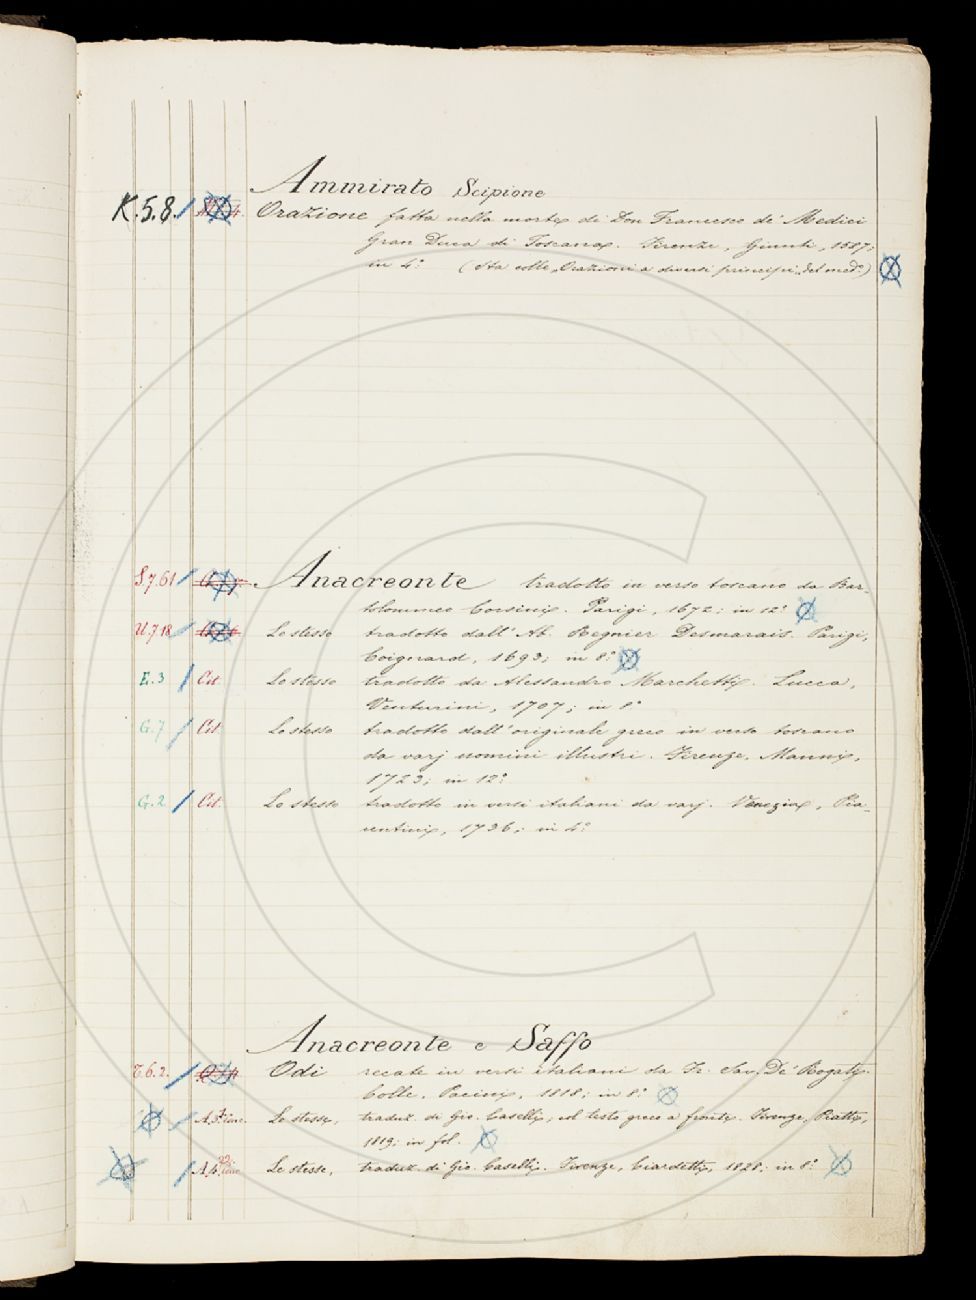 Ammirato Scipione
K.5.8. Orazione fatta nella morte di Don Francesco de' Medici
Gran Duca di Toscana. Firenze, Giunti, 1587;
in 4.° (Sta colle „Orazioni a diversi principi„ del med.°)
S.7.61 Anacreonte tradotto in verso toscano da Bar-
tolommeo Corsini. Parigi, 1672; in 12.°
U.7.18 Lo stesso tradotto dall'Ab. Regnier Desmarais. Parigi,
Coignard, 1693; in 8.°
E.3 Cit. Lo stesso tradotto da Alessandro Marchetti. Lucca,
Venturini, 1707; in 8°
G.7 Cit. Lo stesso tradotto dall'originale greco in verso toscano
da varj uomini illustri. Firenze, Manni,
1723; in 12.°
G.2. Cit. Lo stesso tradotto in versi italiani da varj. Venezia, Pia-
centini, 1736; in 4.°
Anacreonte e Saffo
T.6.2. Odi recate in versi italiani da Fr. Sav. De' Rogati.
Colle, Pacini, 1818; in 8.°
Le stesse, traduz. di Gio. Caselli, col testo greco a fronte. Firenze, Piatti,
1819; in fol.
Le stesse, traduz. di Gio. Caselli. Firenze, Ciardetti, 1828; in 8.°